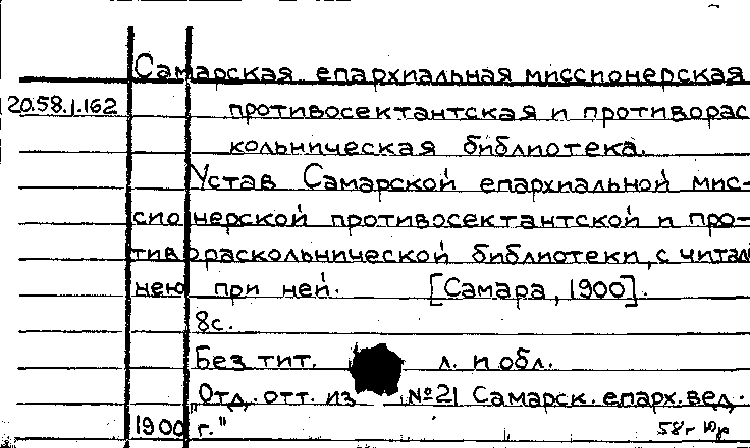 Самарская епархиальная миссионерская
20.58.1.162 противосектантская и противорас
кольническая библиотека.
Устав Самарской епархиальной мис-
сионерской противосектантской и про-
тивораскольнической библиотеки, с читаль
нею при ней. [Самара, 1900].
8с.
Без тит. л. и обл.
"Отд. отт. из №21 Самарск. епарх. вед.
1900 г."
58г